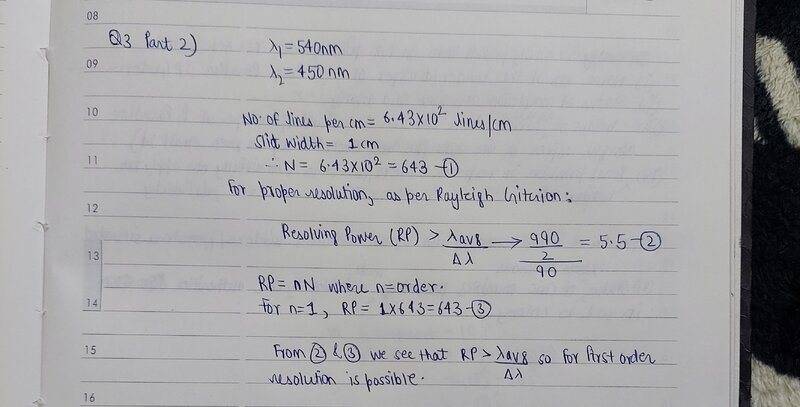 08
Q3 Part 2) λ₁ = 540nm
09
λ₂ = 450 nm
10
No. of lines per cm = 6.43×10² lines/cm
Slit width = 1 cm
11
∴ N = 6.43×10² = 643 - ①
For proper resolution, as per Rayleigh Criterion:
12
Resolving Power (RP) > λavg/Δλ → (990/2)/90 = 5.5 - ②
13
RP = nN where n=order.
14
For n=1, RP = 1×643 = 643 - ③
15
From ② & ③ we see that RP > λavg/Δλ so for first order
resolution is possible.
16